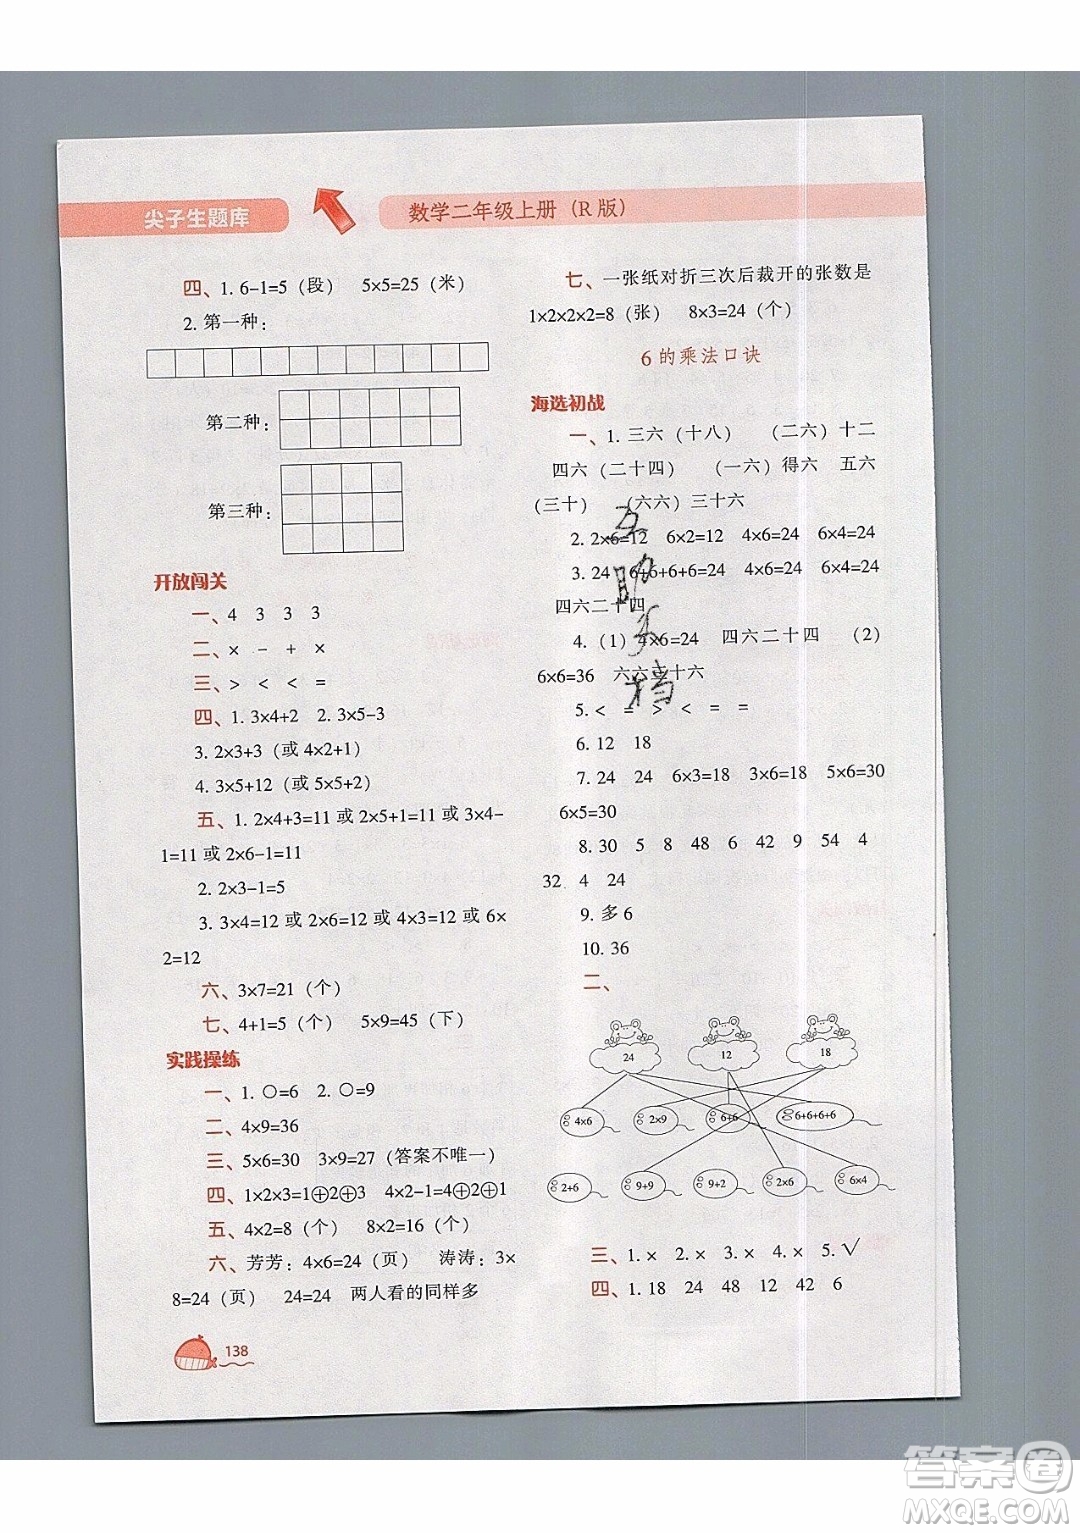 尖子生题库
数学二年级上册（R 版）
四、1. 6-1=5（段） 5×5=25（米）
2. 第一种：
第二种：
第三种：
开放闯关
一、4 3 3 3
二、× - + ×
三、> < < =
四、1. 3×4+2 2. 3×5-3
3. 2×3+3（或 4×2+1）
4. 3×5+12（或 5×5+2）
五、1. 2×4+3=11 或 2×5+1=11 或 3×4-
1=11 或 2×6-1=11
2. 2×3-1=5
3. 3×4=12 或 2×6=12 或 4×3=12 或 6×
2=12
六、3×7=21（个）
七、4+1=5（个） 5×9=45（下）
实践操练
一、1. ○=6 2. ○=9
二、4×9=36
三、5×6=30 3×9=27（答案不唯一）
四、1×2×3=1⊕2⊕3 4×2-1=4⊕2⊕1
五、4×2=8（个） 8×2=16（个）
六、芳芳：4×6=24（页） 涛涛：3×
8=24（页） 24=24 两人看的同样多
138
七、一张纸对折三次后裁开的张数是
1×2×2×2=8（张） 8×3=24（个）
6 的乘法口诀
海选初战
一、1. 三六（十八） （二六）十二
四六（二十四） （一六）得六 五六
（三十） （六六）三十六
2. 2×6=12 6×2=12 4×6=24 6×4=24
3. 24 6+6+6+6=24 4×6=24 6×4=24
四六二十四
4.（1）4×6=24 四六二十四 （2）
6×6=36 六六三十六
5. < = > < = =
6. 12 18
7. 24 24 6×3=18 3×6=18 5×6=30
6×5=30
8. 30 5 8 48 6 42 9 54 4
32 4 24
9. 多 6
10. 36
二、
24 12 18
4×6 2×9 6+6 6+6+6+6
2+6 9+9 9+2 2×6 6×4
三、1. × 2. × 3. × 4. × 5. √
四、1. 18 24 48 12 42 6
互助文档
答案圈
MXQE.COM